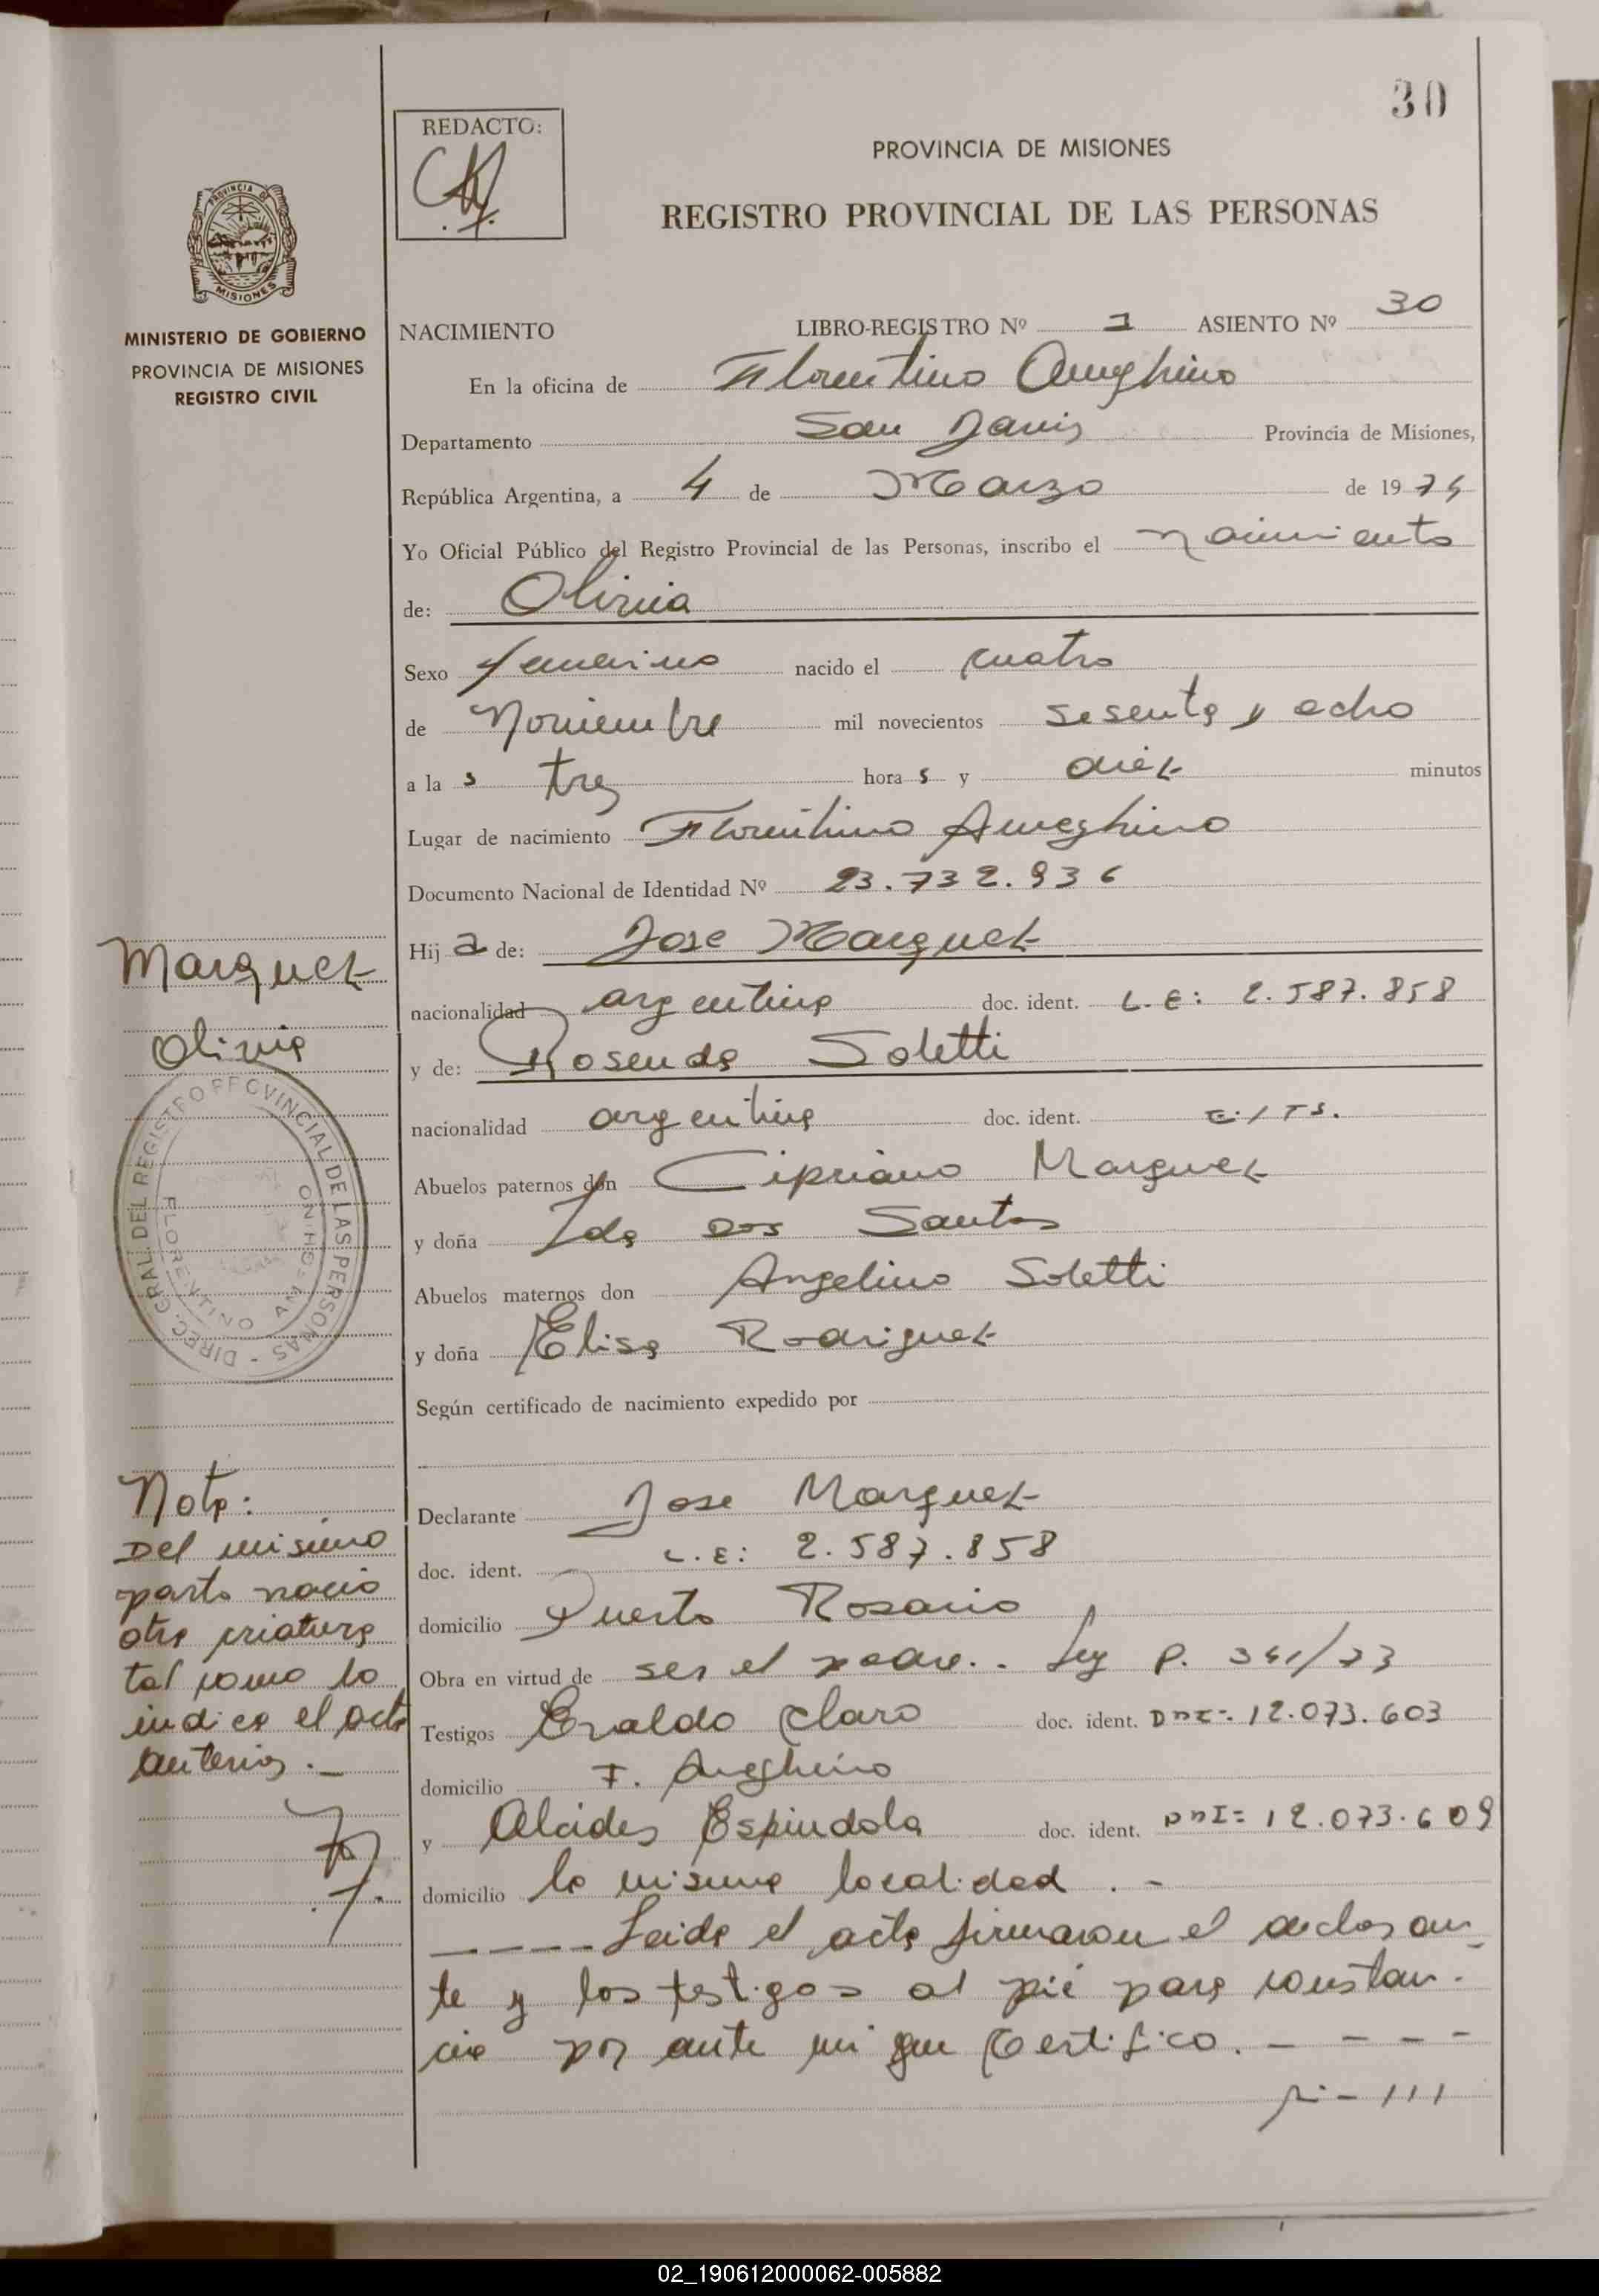 30
REDACTO:
PROVINCIA DE MISIONES
REGISTRO PROVINCIAL DE LAS PERSONAS
PROVINCIA DE
MISIONES
MINISTERIO DE GOBIERNO
PROVINCIA DE MISIONES
REGISTRO CIVIL
NACIMIENTO LIBRO-REGISTRO Nº 1 ASIENTO Nº 30
En la oficina de Florentino Ameghino
Departamento San Javier Provincia de Misiones,
República Argentina, a 4 de Marzo de 1974
Yo Oficial Público del Registro Provincial de las Personas, inscribo el nacimiento
de: Olivia
Sexo femenino nacido el cuatro
de Noviembre mil novecientos sesenta y ocho
a la s tres hora s y diez minutos
Lugar de nacimiento Florentino Ameghino
Documento Nacional de Identidad Nº 23.732.936
Hij a de: Jose Marquez
nacionalidad argentina doc. ident. L.E: 2.587.858
y de: Rosenda Soletti
nacionalidad argentina doc. ident.
Abuelos paternos don Cipriano Marquez
y doña Ida Dos Santos
Abuelos maternos don Angelino Soletti
y doña Elisa Rodriguez
Según certificado de nacimiento expedido por
Declarante Jose Marquez
doc. ident. L.E: 2.587.858
domicilio Puerto Rosario
Obra en virtud de ser el padre.. Ley P. 341/73
Testigos Eraldo Claro doc. ident. DNI: 12.073.603
domicilio F. Ameghino
y Alcides Espindola doc. ident. DNI= 12.073.609
domicilio la misma localidad . -
----- Leida el acta firmaron el declaran-
te y los testigos al pié para constan-
cia por ante mi que Certifico. - - - -
///
Marquez
Olivia
DIREC. GRAL. DEL REGISTRO PROVINCIAL DE LAS PERSONAS -
FLORENTINO AMEGHINO
Nota:
Del mismo
parto nacio
otra criatura
tal como lo
indica el acta
anterior.-
02_190612000062-005882